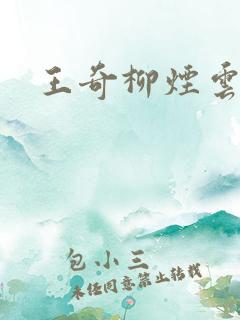 王奇柳煙雲
包小三
未经同意禁止转载